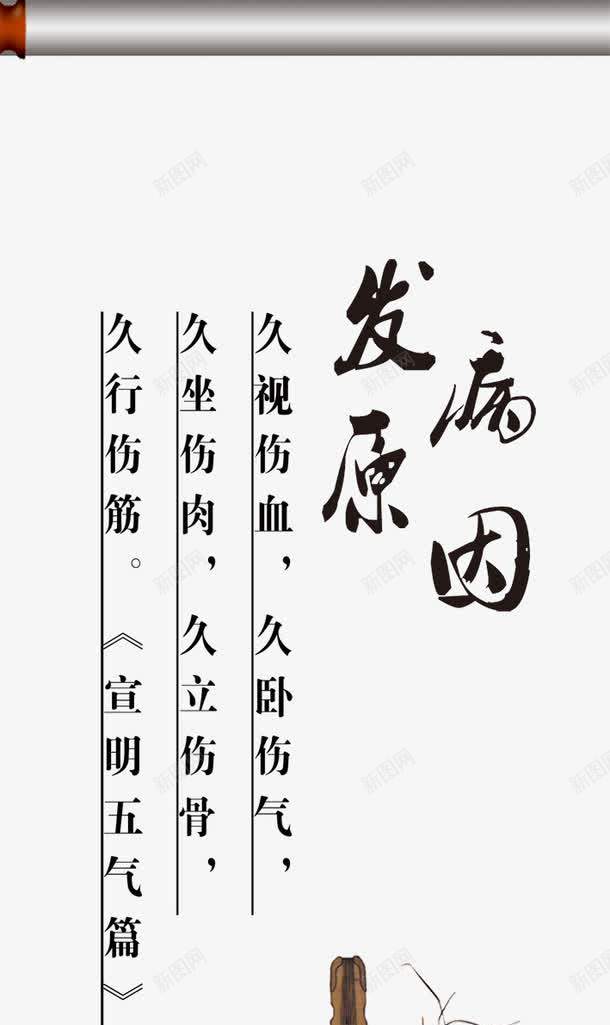 发病原因
久视伤血，久卧伤气，
久坐伤肉，久立伤骨，
久行伤筋。《宣明五气篇》
新图网